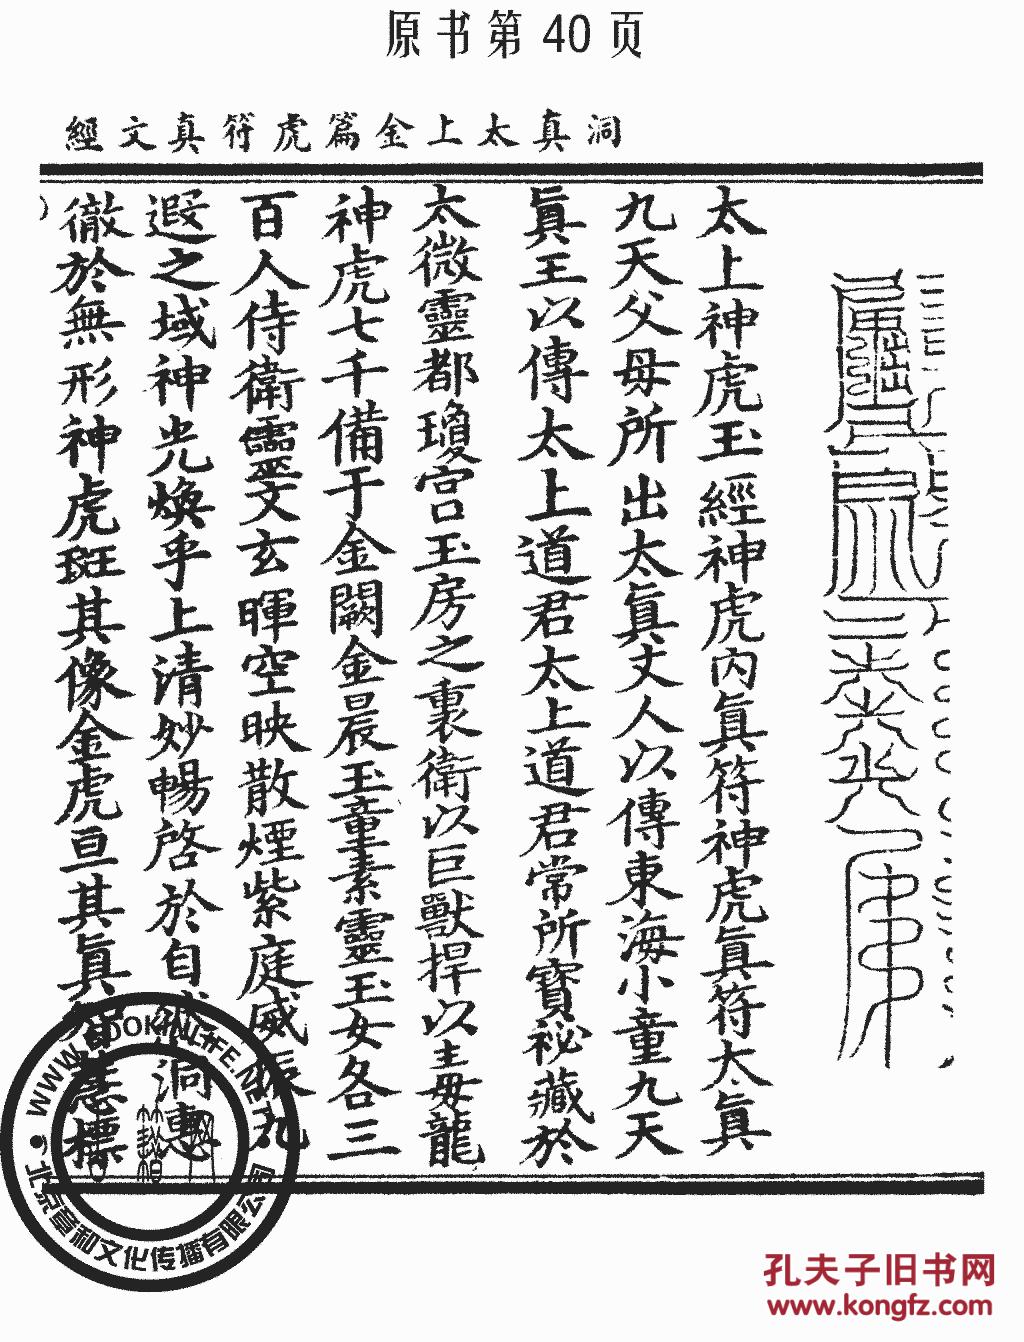 原书第 40 页
洞真太上金篇虎符真文經
太上神虎玉經神虎內眞符神虎眞符太眞
九天父母所出太眞丈人以傳東海小童九天
眞王以傳太上道君太上道君常所寶祕藏於
太微靈都瓊宮玉房之裏衛以巨獸捍以毒龍
神虎七千備于金闕金晨玉童素靈玉女各三
百人侍衛靈文玄暉空映散煙紫庭威振九
遐之域神光煥乎上清妙暢啓於自
徹於無形神虎斑其像金虎亘其眞
北京章和文化传播有限公司
孔夫子旧书网
www.kongfz.com